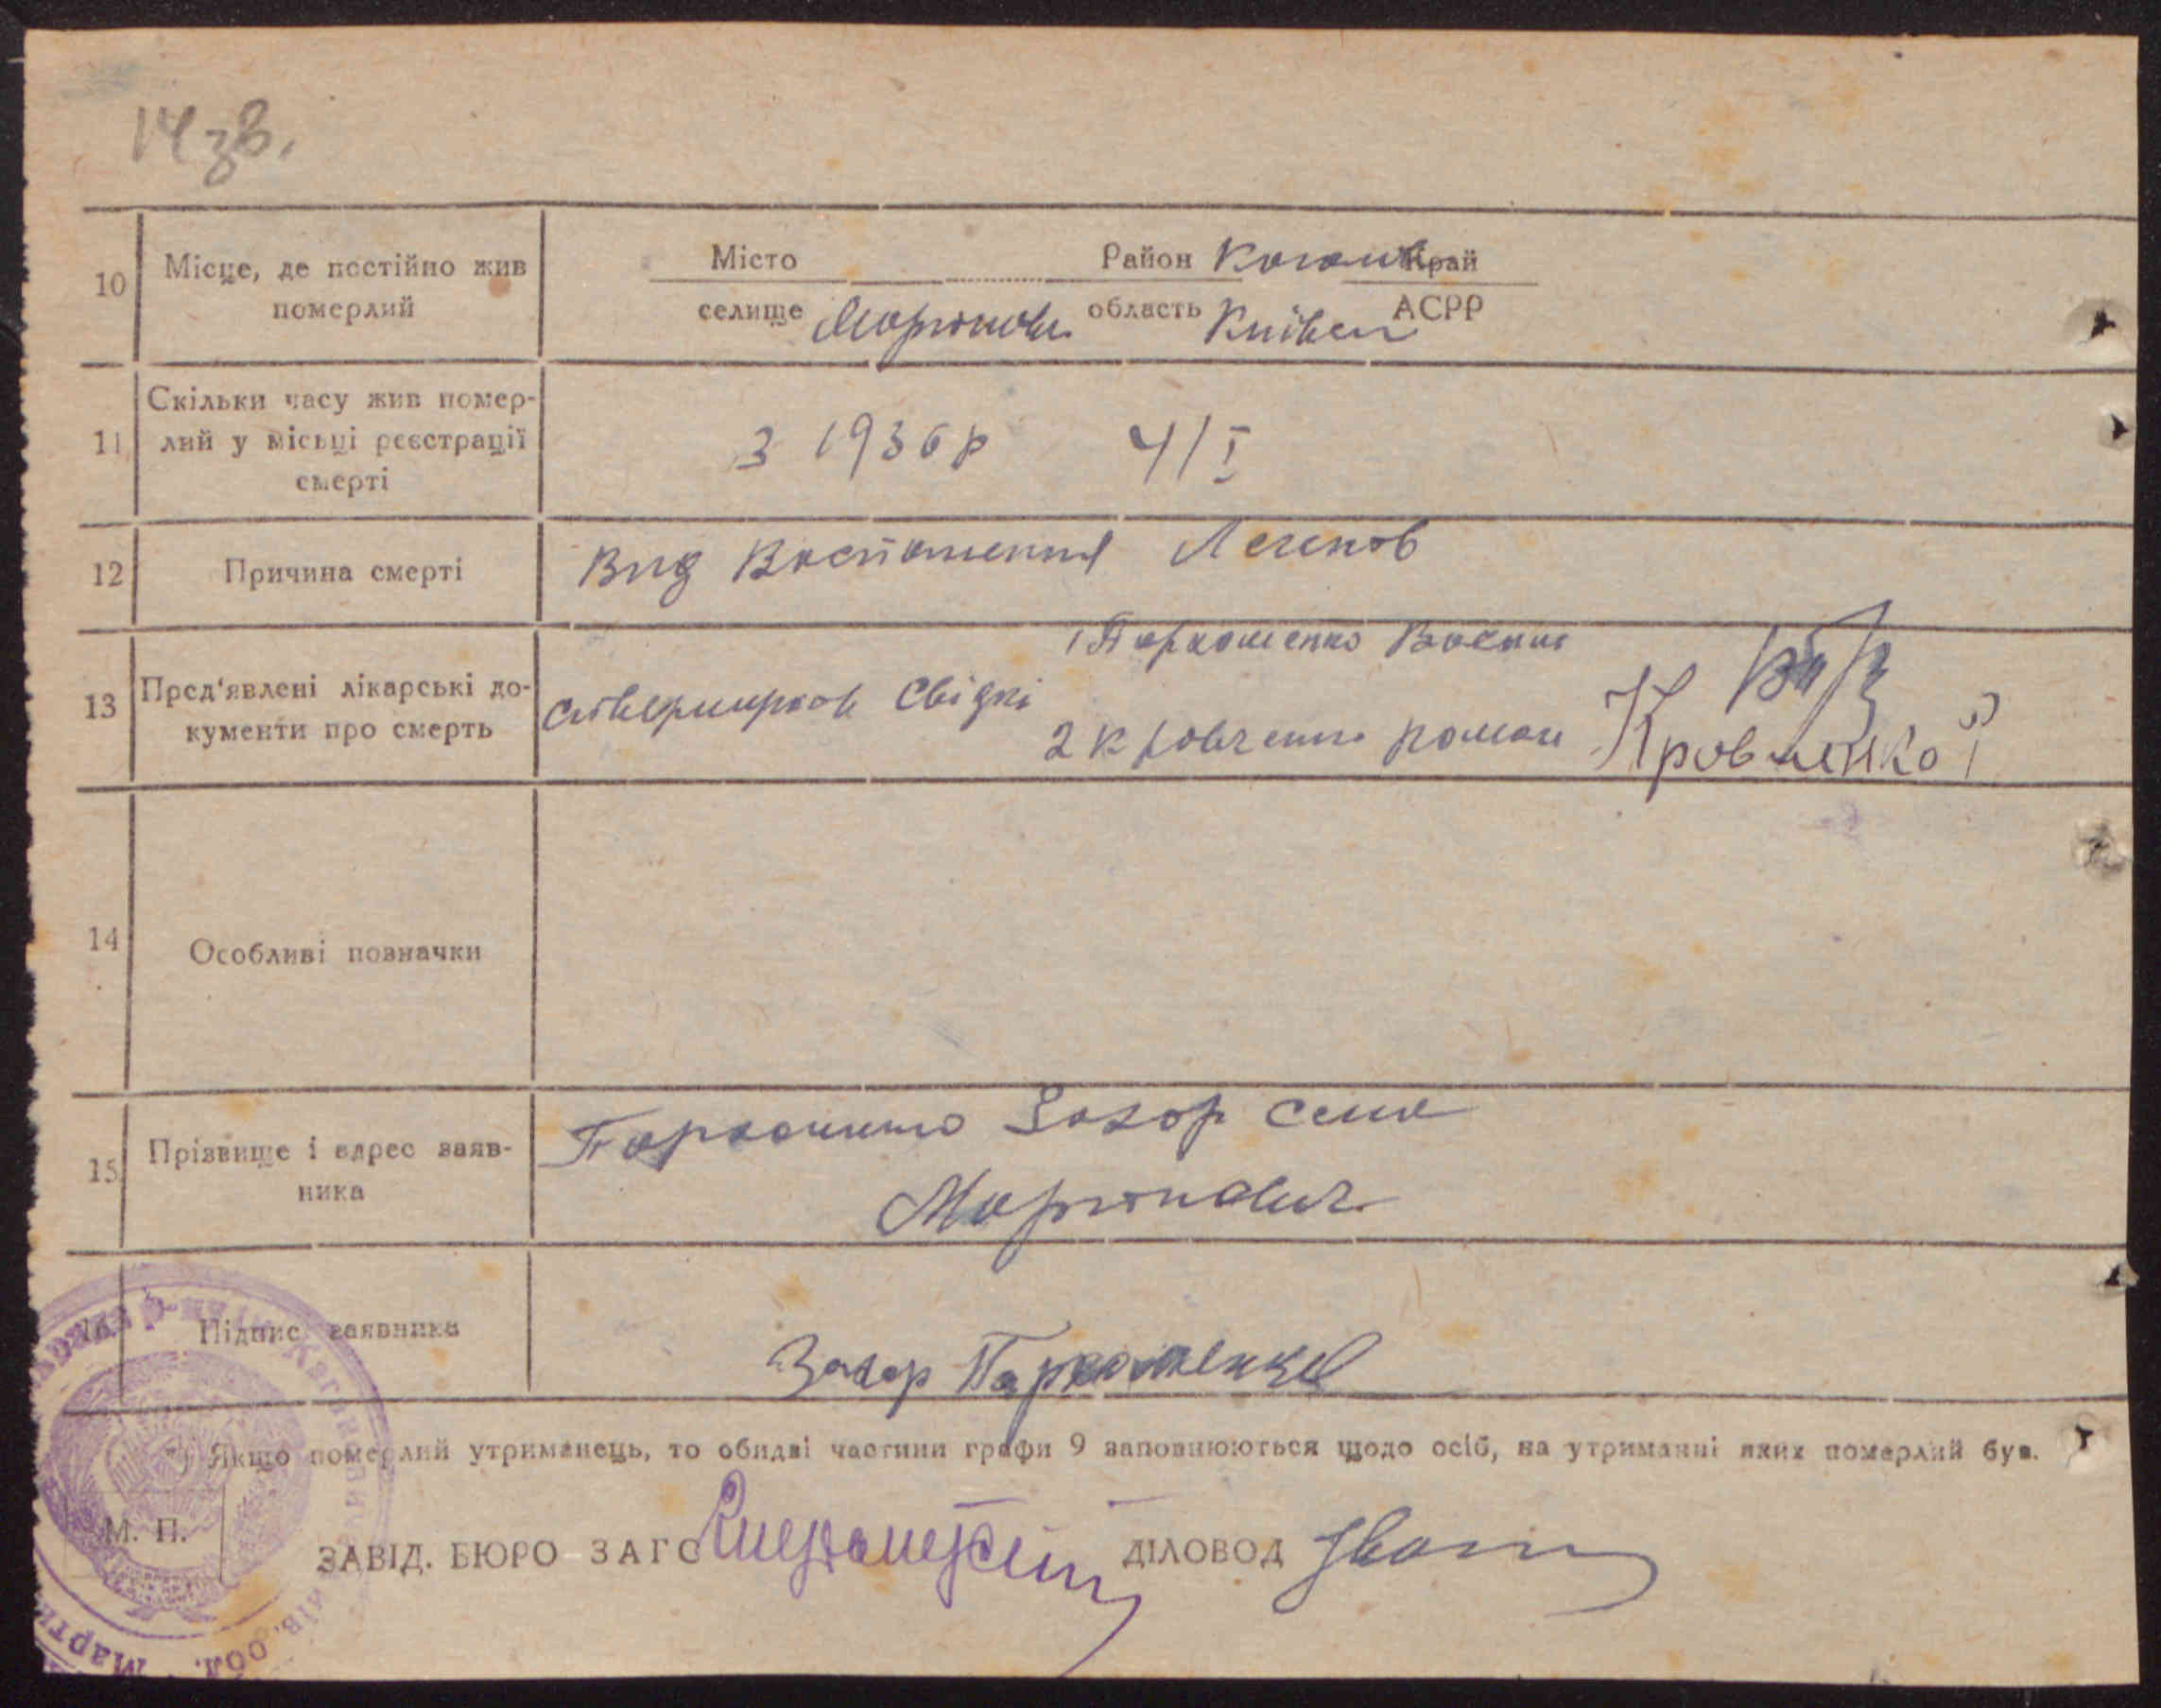 14 зв.
10 Місце, де постійно жив померлий
Місто Район Коганов Край
селище Мартинови область Київсь АСРР
11 Скільки часу жив помер-
лий у місьці реєстрації
смерті
З 1936 р 4/I
12 Причина смерті
Вид Воспаления Легенов
13 Пред'явлені лікарські до-
кументи про смерть
1 Пархоменко
свідкі
2 Кровченко Роман Кровченко Р
14 Особливі повначки
15 Прізвище і адрес заяв-
ника
Пархоменко Захор село
Мартинович
16 Підпис заявника
Захар Пархоменко
Якщо померлий утриманець, то обидві частини графи 9 заповнюються щодо осіб, на утриманні яких померлий був.
М. П.
ЗАВІД. БЮРО ЗАГС ДІЛОВОД